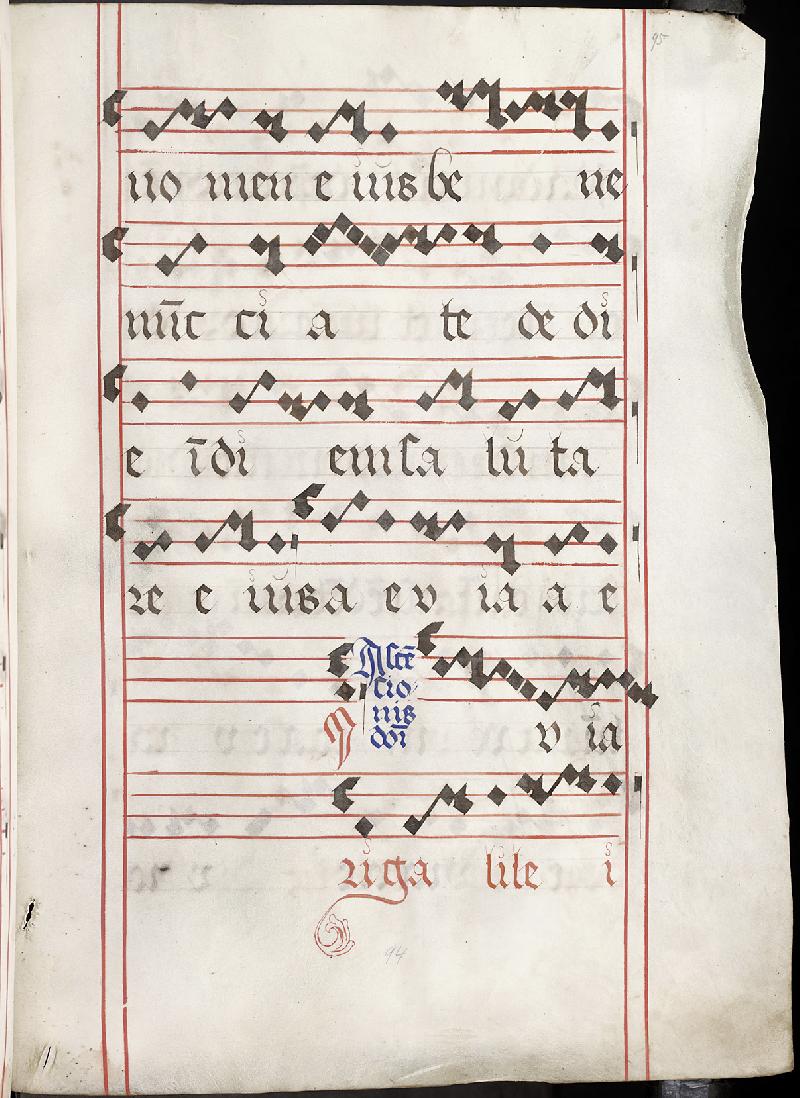 95
no men e ius be ne
nūc ci a te de di
e ī di em sa lu ta
re e ius a e v ia a e
Ascē
cio
nis
dōi
v ia
iri ga li le i
94